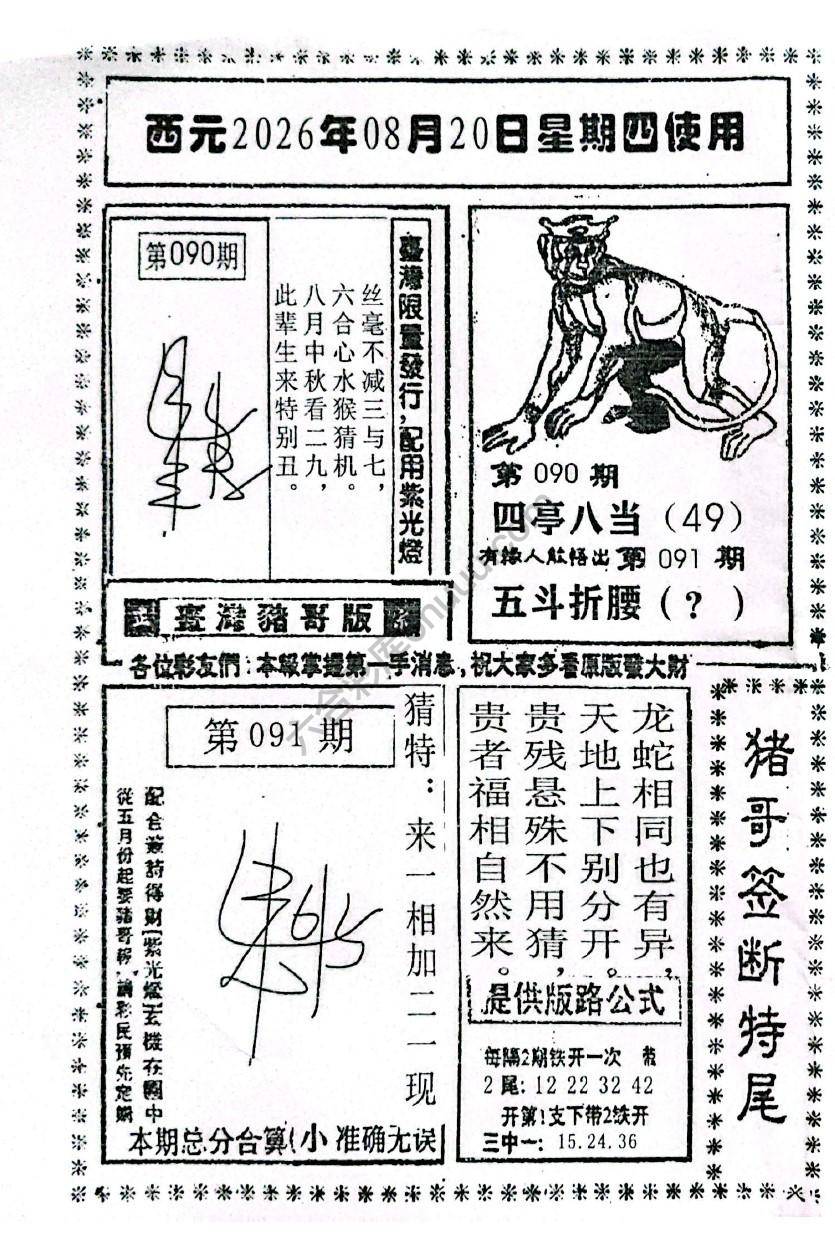 西元2026年08月20日星期四使用
第090期
丝毫不减三与七，
六合心水猴猜机。
八月中秋看二九，
此辈生来特别丑。
臺灣限量發行，配用紫光燈
臺灣豬哥版
第 090 期
四亭八当（49）
有缘人能悟出 第 091 期
五斗折腰（?）
各位彩友們：本報掌握第一手消息，祝大家多看原版發大財
第091期
猜特：来一相加二一现
配合兼詩得財(紫光燈)玄機在圖中
從五月份起要豬哥報，請彩民預先定購
本期总分合算(小 准确无误
龙蛇相同也有异，
天地上下别分开。
贵残悬殊不用猜，
贵者福相自然来。
提供版路公式
每隔2期铁开一次
2尾: 12 22 32 42
开第1支下带2铁开
三中一: 15.24.36
猪哥签断特尾
六合彩库